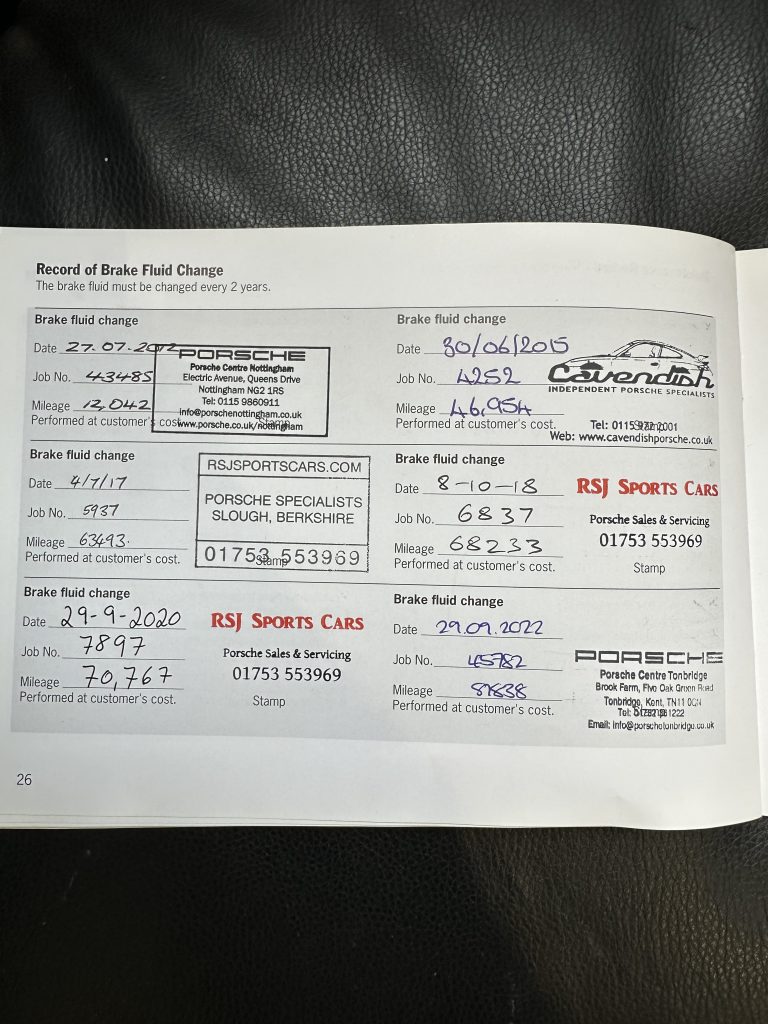 Record of Brake Fluid Change
The brake fluid must be changed every 2 years.
Brake fluid change
Date 27.07.2012
Job No. 43485
Mileage 12,042
Performed at customer's cost.
PORSCHE
Porsche Centre Nottingham
Electric Avenue, Queens Drive
Nottingham NG2 1RS
Tel: 0115 9860911
info@porschenottingham.co.uk
www.porsche.co.uk/nottingham
Brake fluid change
Date 30/06/2015
Job No. 4252
Mileage 46,954
Performed at customer's cost.
Cavendish
INDEPENDENT PORSCHE SPECIALISTS
Tel: 0115 972 2001
Web: www.cavendishporsche.co.uk
Brake fluid change
Date 4/7/17
Job No. 5937
Mileage 63493.
Performed at customer's cost.
RSJSPORTSCARS.COM
PORSCHE SPECIALISTS
SLOUGH, BERKSHIRE
01753 553969
Stamp
Brake fluid change
Date 8-10-18
Job No. 6837
Mileage 68233
Performed at customer's cost.
RSJ SPORTS CARS
Porsche Sales & Servicing
01753 553969
Stamp
Brake fluid change
Date 29-9-2020
Job No. 7897
Mileage 70,767
Performed at customer's cost.
RSJ SPORTS CARS
Porsche Sales & Servicing
01753 553969
Stamp
Brake fluid change
Date 29.09.2022
Job No. 45782
Mileage
Performed at customer's cost.
PORSCHE
Porsche Centre Tonbridge
Brook Farm, Five Oak Green Road
Tonbridge, Kent, TN11
Tel:
Email: info@porschetonbridge.co.uk
26